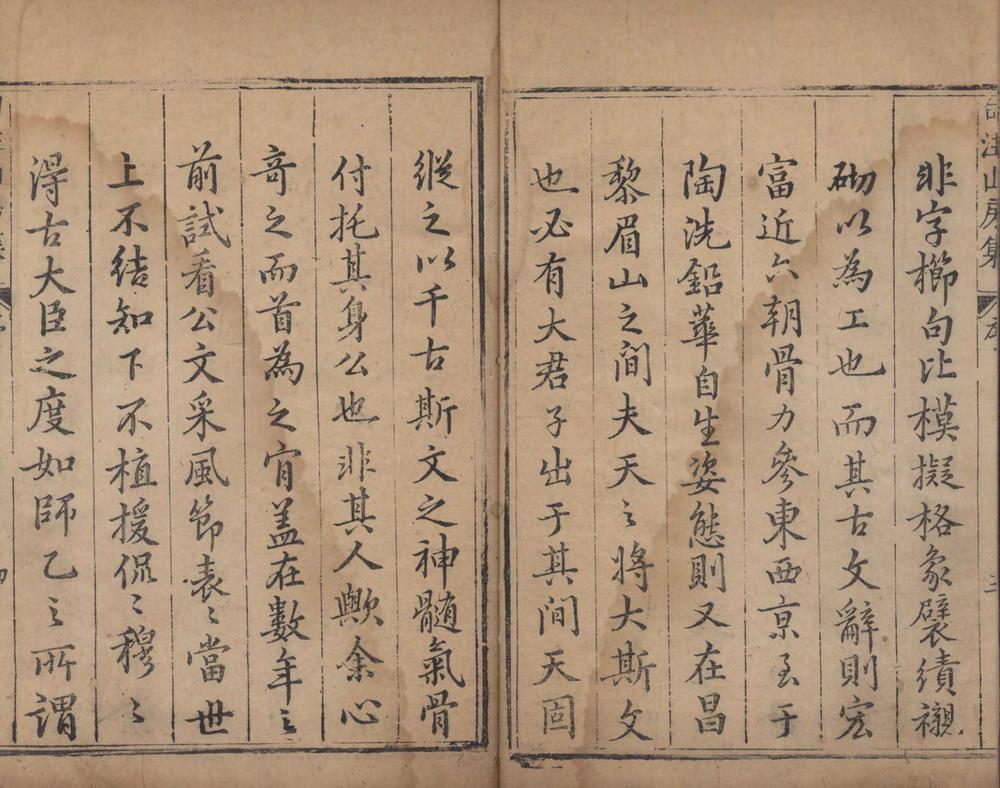 非字櫛句比模擬格象襞績襯
砌以為工也而其古文辭則宏
富近六朝骨力參東西京至于
陶洗鉛華自生姿態則又在昌
黎眉山之間夫天之將大斯文
也必有大君子出于其間天固
縱之以千古斯文之神髓氣骨
付托其身公也非其人歟余心
竒之而首為之肎盖在數年之
前試看公文采風節表〻當世
上不結知下不植援侃〻穆〻
得古大臣之度如師乙之所謂